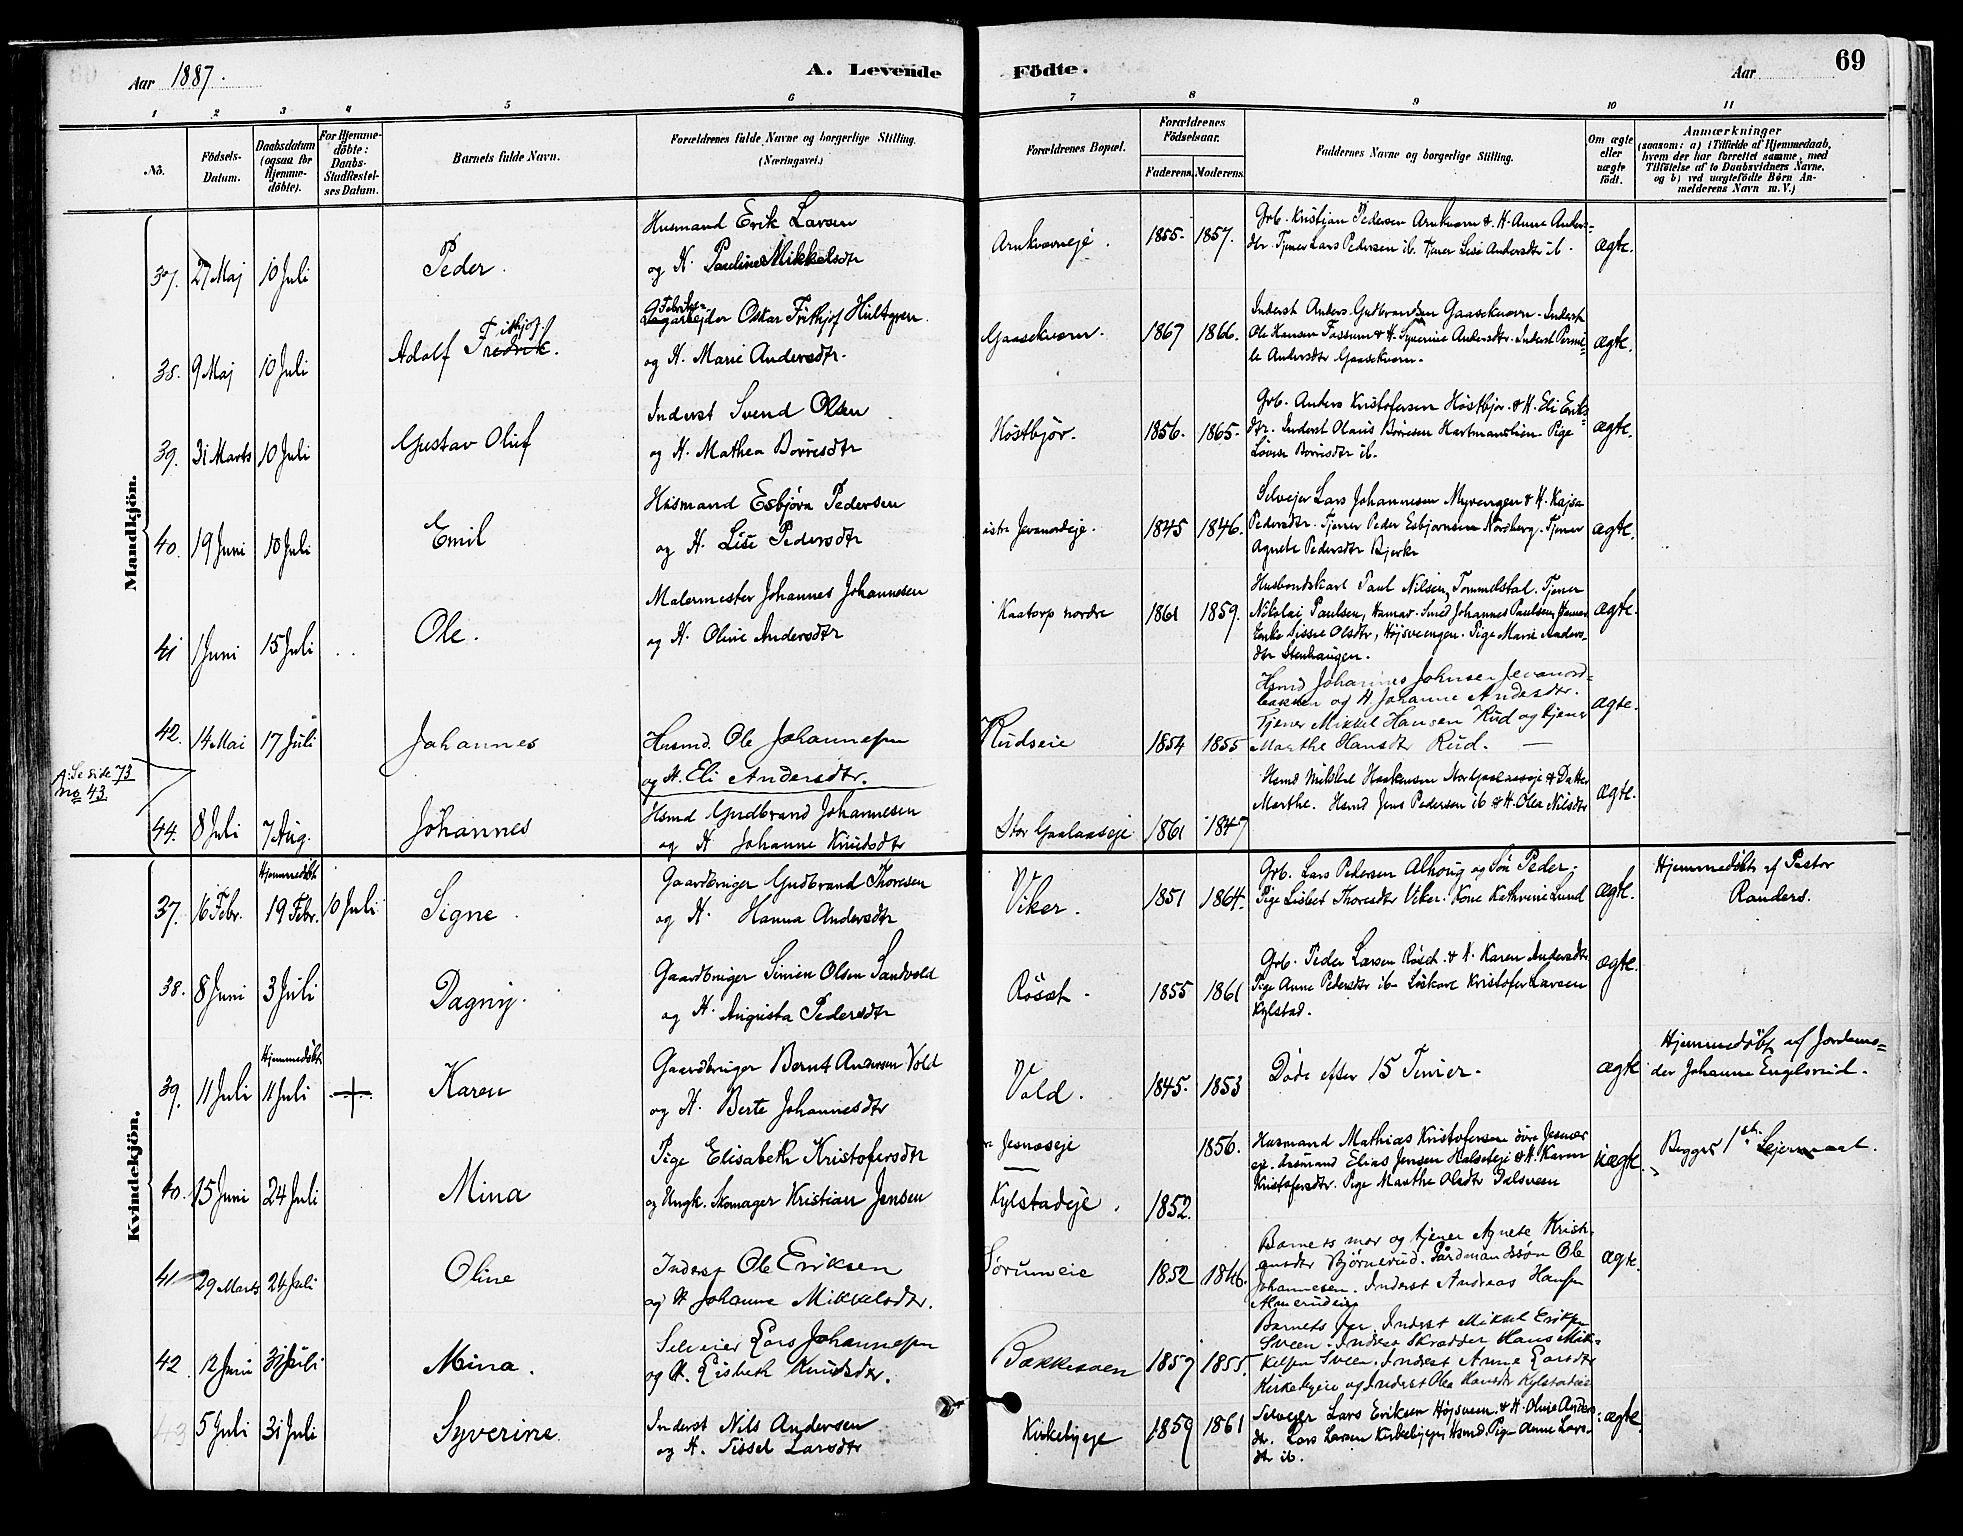 Aar 1887. A. Levende Födte. Aar 69
1 2 3 4 5 6 7 8 9 10 11
No. Födsels-Datum. Daabsdatum (ogsaa for Hjemmedöbte). For Hjemmedöbte: Daabs-Stadfæstelses Datum. Barnets fulde Navn. Forældrenes fulde Navne og borgerlige Stilling. (Næringsvei.) Forældrenes Bopæl. Forældrenes Födselsaar. Faderens Moderens. Faddernes Navne og borgerlige Stilling. Om ægte eller uægte födt. Anmærkninger (saasom: a) i Tilfælde af Hjemmedaab, hvem der har forrettet samme, med Tilföielse af to Daabsvidners Navne, og b) ved uægtefödte Börn Anmelderens Navn m. V.)
Mandkjön.
37. 27 Maj 10 Juli Peder. Husmand Erik Larsen
og H. Pauline Mikkelsdtr
Arnkværneje. 1855. 1857.
Grb. Kristian Pedersen Arnkværn & H. Anne Anders-
dtr. Tjener Lars Pedersen ib. Tjener Lise Andersdtr ib. ægte.
38. 9 Maj 10 Juli Adolf Fredrik. Frithjof. Fabriks-
arbejder Oskar Frithjof Hultgren.
og H. Marie Andersdtr.
Gaasekværn. 1867 1866.
Inderst Anders Gudbrandsen Gaasekværn. Inderst
Ole Hansen Fossum & H. Syverine Andersdtr. Inderst Perni-
le Andersdtr Gaasekværn. ægte.
39. 31 Marts 10 Juli Gustav Oluf Inderst Svend Olsen
og H. Mathea Börresdtr
Höstbjör. 1856. 1865.
Grb. Anders Kristofersen Höstbjör. & H. Eli Eriks-
dtr. Inderst Olaus Börresen Hartmanstien. Pige
Lovise Börresdtr ib. ægte.
40. 19 Juni 10 Juli Emil Husmand Esbjörn Pedersen
og H. Lise Pedersdtr
Jevanordeje. 1845 1846.
Selvejer Lars Johannesen Myrengen & H. Kajsa
Pedersdtr. Tjener Peder Esbjörnsen Nordberg. Tjener
Agnete Pedersdtr Bjerke ægte.
41 1 Juni 15 Juli Ole. Malermester Johannes Johannesen
og H. Oline Andersdtr
Kaatorp nordre 1861 1859.
Husbondskarl Paul Nilsen, Tommelstal. Tjener
Nikolai Paulsen, Hamar. Smed Johannes Paulsen,
Enke Sissel Olsdtr, Højsveengen. Pige Marie Anders-
dtr Stenhaugen. ægte.
42. 14 Mai 17 Juli Johannes Husmd. Ole Johannesen
og H. Eli Andersdtr.
Rudseie 1854 1855
Hsmd Johannes Johnsen Jevanord-
bakken og H Johanne Andersdtr.
Tjener Mikkel Hansen Rud og tjener
Marthe Hansdtr Rud. — ægte.
Se side 73
no 43
44. 8 Juli 7 Aug. Johannes Hsmd Gudbrand Johannesen
og H Johanne Knudsdtr
Stor Gaalaaseje 1861 1847
Hsmd Mikkel Haakensen & Datter
Marthe. Hsmd Jens Pedersen ib & H. Olea Nilsdtr ægte.
Kvindekjön.
37. 16 Febr. Hjemmedöbt 19 Febr. 10 Juli Signe Gaardbruger Gudbrand Thoresen
og H. Hanna Andersdtr
Viker. 1851 1864.
Grb. Lars Pedersen Alhoug og Sön Peder.
Pige Lisbet Thoresdtr Viker. Kone Kathrine Lund ægte.
Hjemmedöbt af Pastor
Randers.
38. 8 Juni 3 Juli Dagny. Gaardbruger Simen Olsen Sandvold
og H. Augusta Pedersdtr
Rösset. 1855 1861
Grb. Peder Larsen Röset. & H. Karen Andersdtr
Pige Anne Pedersdtr ib. Löskarl Kristofer Larsen
Kylstad. ægte.
39. 11 Juli Hjemmedöbt 11 Juli Karen Gaardbruger Bernt Andersen Vold
og H. Berte Johannesdtr
Vold. 1845. 1853
Döde efter 15 Timer. ægte
Hjemmedöbt af Jordemo-
der Johanne Engelsrud.
40. 15 Juni 24 Juli Mina Pige Elisabeth Kristofersdtr
og Ungk. Skomager Kristian Jensen
Jesnæseje
Kylstadeje. 1852. 1856.
Husmand Mathias Kristofersen övre Jesnæs-
eje. Husmand Elias Jensen Halseteje & H. Karen
Kristofersdtr. Pige Marthe Olsdtr Dalsveen uægte.
Begges 1ste Lejermaal.
41 29 Marts 24 Juli Oline Inderst Ole Eriksen
og H Johanne Mikkelsdtr.
Sörumeie 1852 1846.
Barnets mor og tjener Agnete Kristi-
ansdtr Björnerud. Gårdmandssön Ole
Johannesen. Inderst Andreas Hansen
Almerudeie ægte.
42 12 Juni 31 Juli Mina. Selveier Lars Johannesen
og H. Lisbeth Knudsdtr.
Bækkesveen 1857 1855.
Barnets far. Inderst Mikkel Eriksen
Sveen. Inderst Skrædder Hans Mik-
kelsen Sveen. Inderst Anne Larsdtr
Kirkebyeie og Inderst Olea Hansdtr Kylstadeie
43 5 Juli 31 Juli Syverine Inderst Nils Andersen
og H. Sissel Larsdtr
Kirkebyeje 1859 1861
Selvejer Lars Eriksen Højsveen. & H. Oline Anders-
dtr. Lars Larsen Kirkebyeje Hsmd. Pige Anne Lars-
dtr ib. ægte.